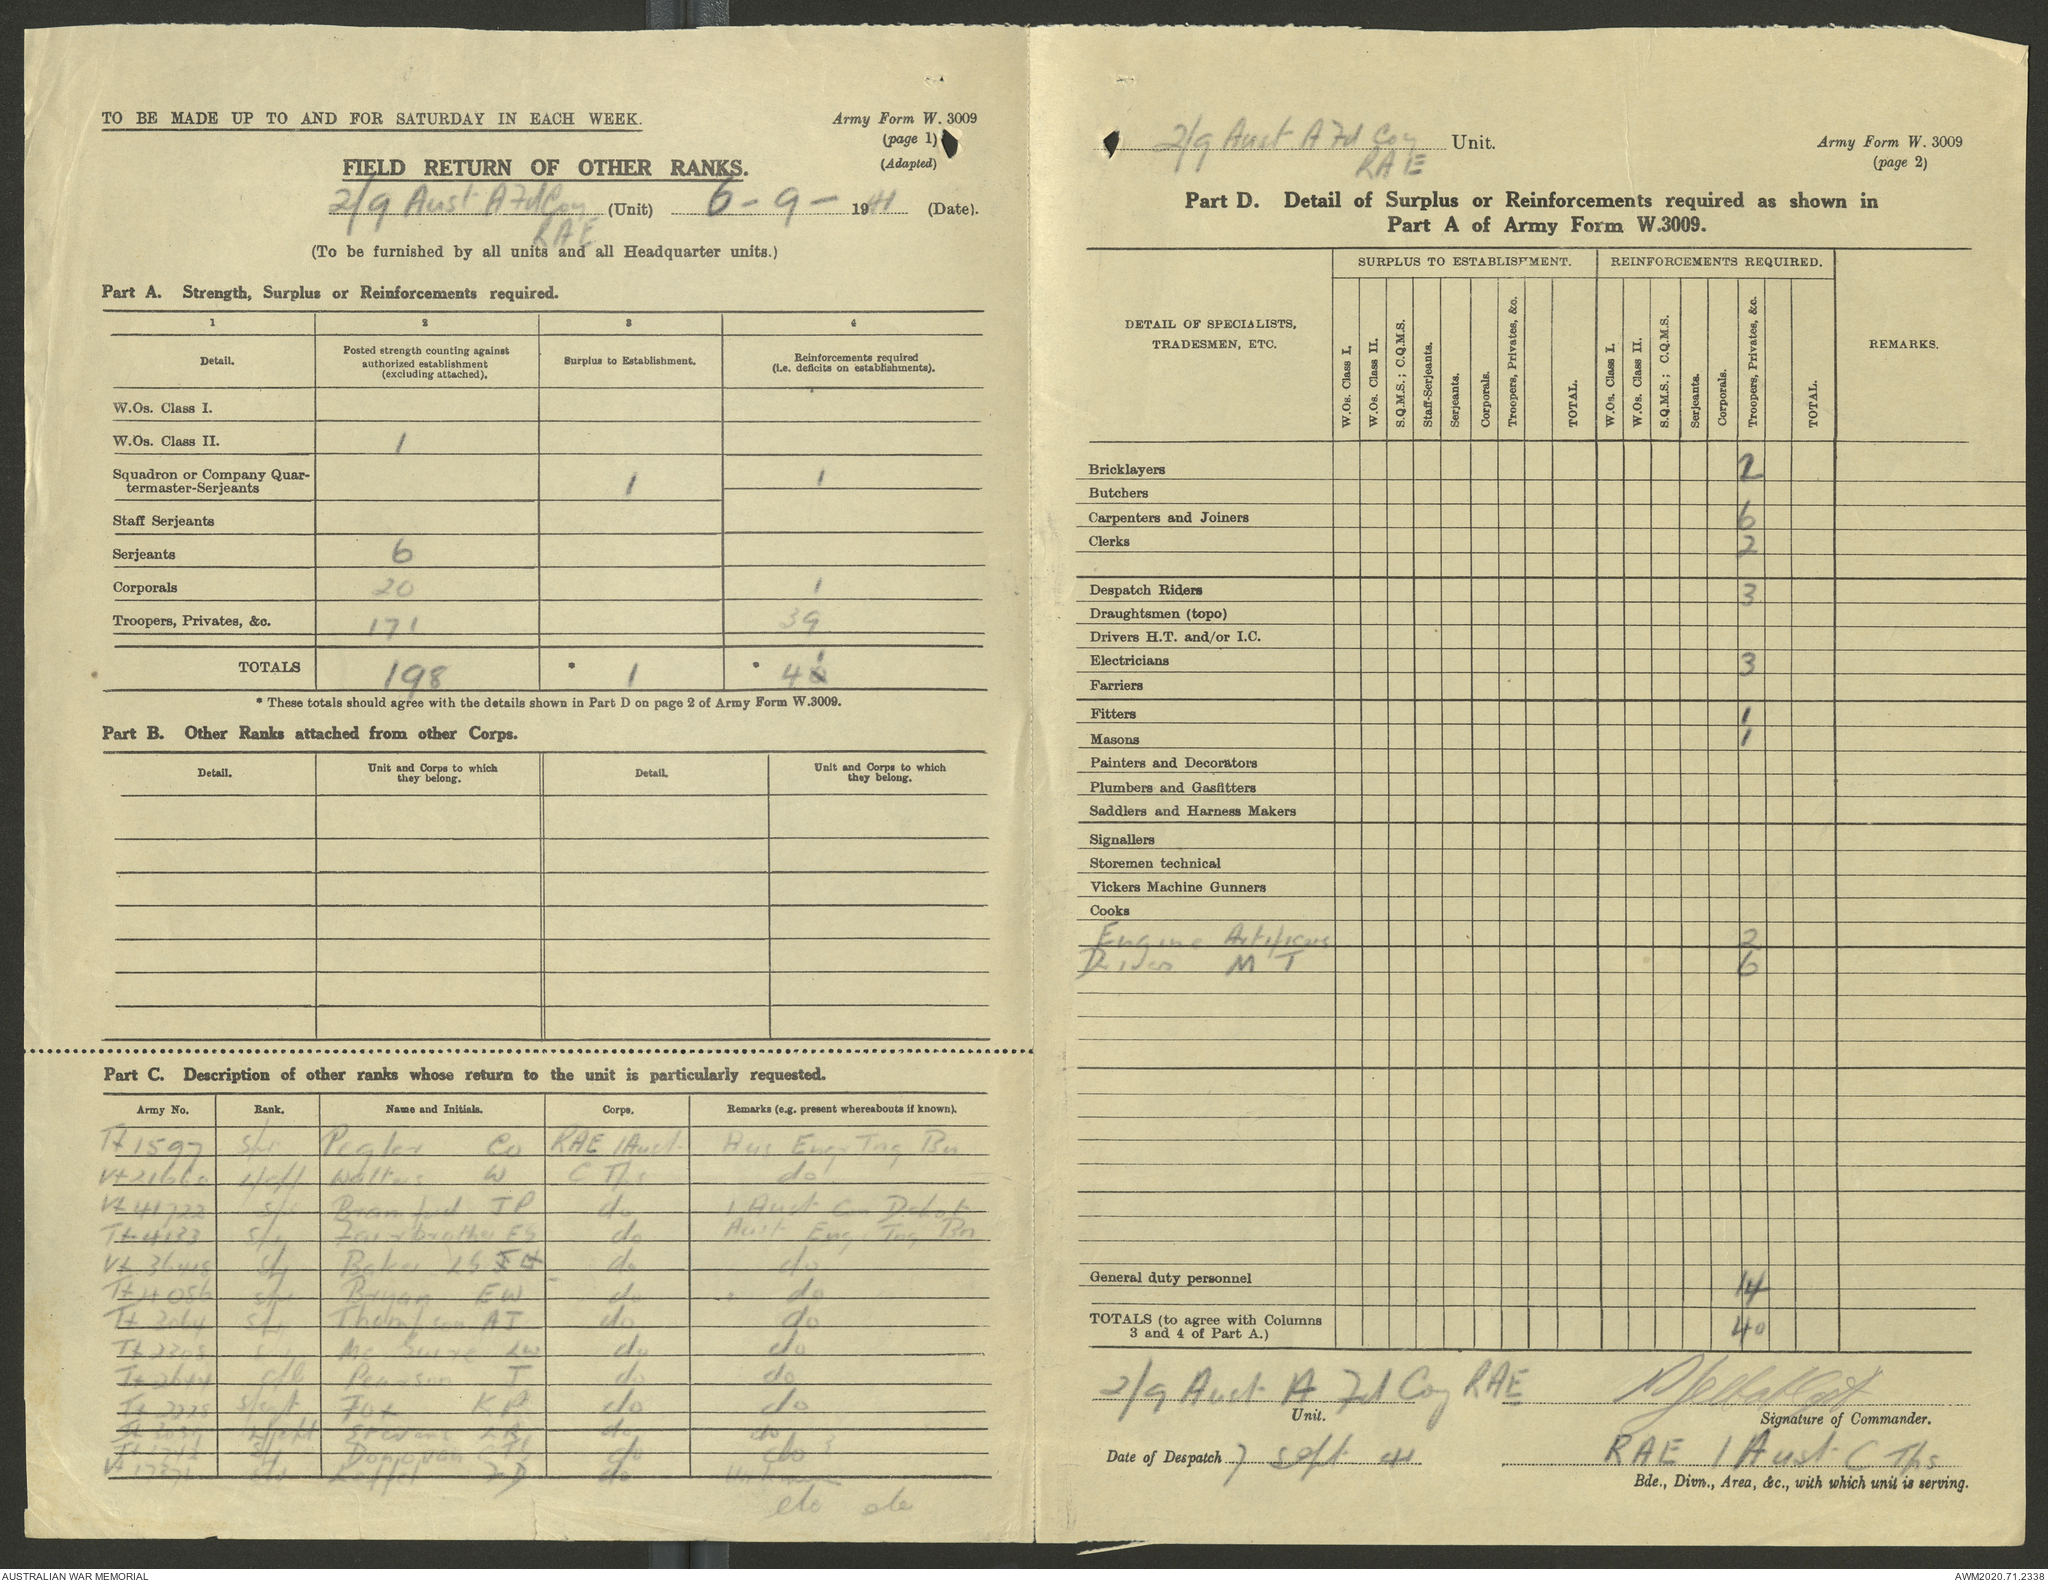 TO BE MADE UP TO AND FOR SATURDAY IN EACH WEEK.
Army Form W. 3009
(page 1)
(Adapted)
FIELD RETURN OF OTHER RANKS.
2/9 Aust A Fd Coy RAE (Unit) 6 - 9 - 1941 (Date).
(To be furnished by all units and all Headquarter units.)
Part A. Strength, Surplus or Reinforcements required.
1 2 3 4
Detail. Posted strength counting against authorized establishment (excluding attached). Surplus to Establishment. Reinforcements required (i.e. deficits on establishments).
W.Os. Class I.
W.Os. Class II. 1
Squadron or Company Quar-
termaster-Serjeants 1 1
Staff Serjeants
Serjeants 6
Corporals 20 1
Troopers, Privates, &c. 171 39
TOTALS 198 * 1 * 41
* These totals should agree with the details shown in Part D on page 2 of Army Form W.3009.
Part B. Other Ranks attached from other Corps.
Detail. Unit and Corps to which they belong. Detail. Unit and Corps to which they belong.
Part C. Description of other ranks whose return to the unit is particularly requested.
Army No. Rank. Name and Initials. Corps. Remarks (e.g. present whereabouts if known).
TX 1597 Spr Pegler CO RAE 1 Aust Aus Engr Tng Bn
Walters W C Tps do
VX 41722 Spr JP do 1 Aust Con Depot
TX 4133 Spr Fairbrother ES do Aust Eng Tng Bn
VX 36418 Spr Baker do do
TX 4056 Spr Bryan EW do do
TX 3064 Spr Thompson AJ do do
TX 2308 McGuire LW do do
TX 2644 Cpl Pearson J do do
TX 2228 Fox KP do do
Stevens do do
Donovan do do
do Unknown
do do
2/9 Aust A Fd Coy RAE Unit.
Army Form W. 3009
(page 2)
Part D. Detail of Surplus or Reinforcements required as shown in
Part A of Army Form W.3009.
DETAIL OF SPECIALISTS, TRADESMEN, ETC. SURPLUS TO ESTABLISHMENT. REINFORCEMENTS REQUIRED. REMARKS.
W.Os. Class I. W.Os. Class II. S.Q.M.S.; C.Q.M.S. Staff-Serjeants. Serjeants. Corporals. Troopers, Privates, &c. TOTAL. W.Os. Class I. W.Os. Class II. S.Q.M.S.; C.Q.M.S. Serjeants. Corporals. Troopers, Privates, &c. TOTAL.
Bricklayers 2
Butchers
Carpenters and Joiners 6
Clerks 2
Despatch Riders 3
Draughtsmen (topo)
Drivers H.T. and/or I.C.
Electricians 3
Farriers
Fitters 1
Masons 1
Painters and Decorators
Plumbers and Gasfitters
Saddlers and Harness Makers
Signallers
Storemen technical
Vickers Machine Gunners
Cooks
Engine Artificers 2
Drivers M T 6
General duty personnel 14
TOTALS (to agree with Columns
3 and 4 of Part A.) 40
2/9 Aust A Fd Coy RAE
Unit. Signature of Commander.
Date of Despatch 7 Sept 41 RAE 1 Aust C Tps
Bde., Divn., Area, &c., with which unit is serving.
AUSTRALIAN WAR MEMORIAL
AWM2020.71.2338